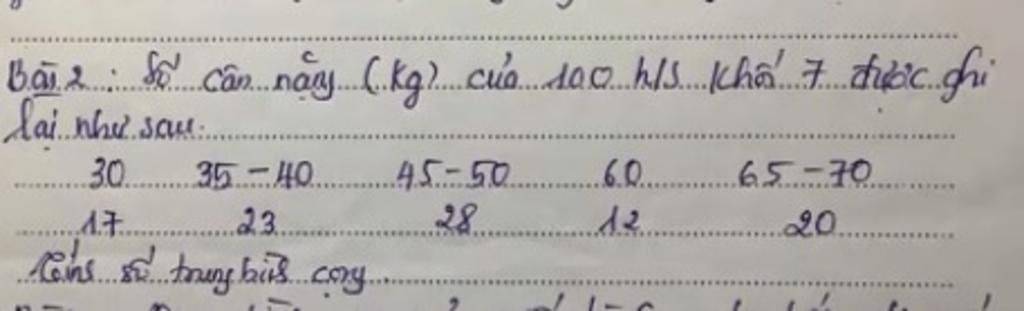 Bài 2: Số cân nặng (kg) của 100 h/s khối 7 được ghi
lại như sau.
30 35-40 45-50 60 65-70
17 23 28 12 20
Tính số trung bình cộng